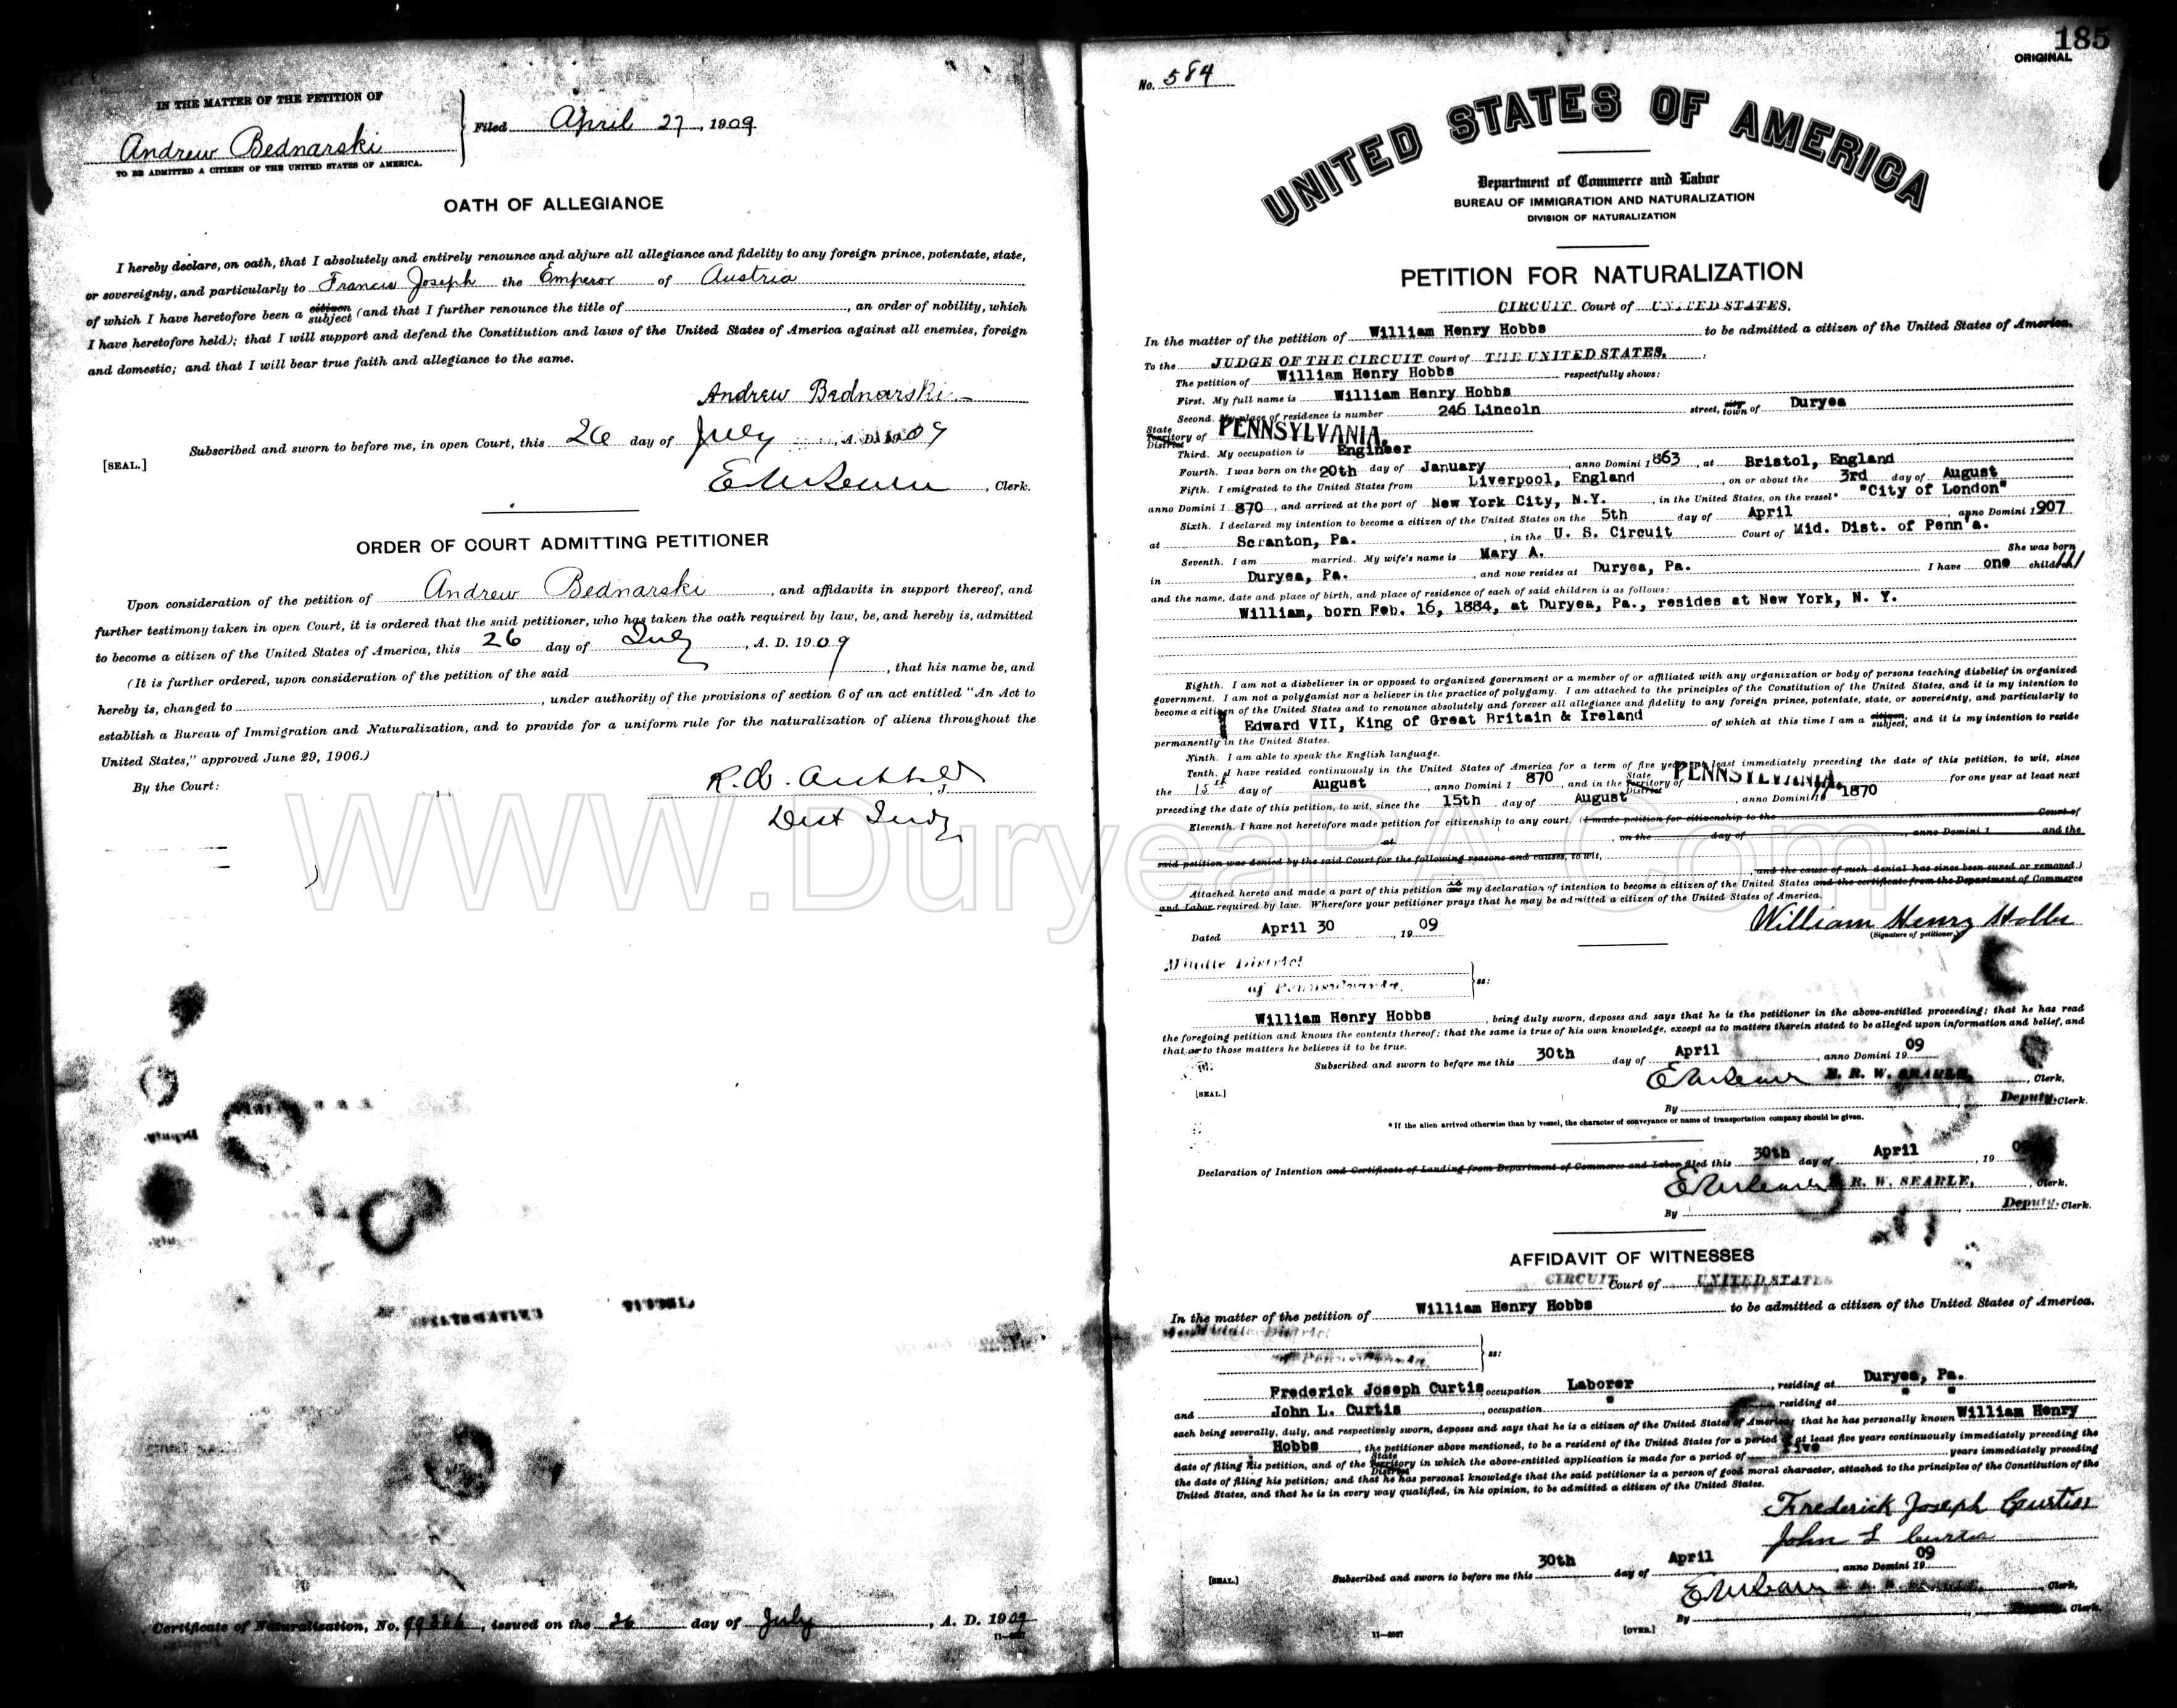 IN THE MATTER OF THE PETITION OF
Andrew Bednarski
TO BE ADMITTED A CITIZEN OF THE UNITED STATES OF AMERICA.
Filed April 27, 1909
OATH OF ALLEGIANCE
I hereby declare, on oath, that I absolutely and entirely renounce and abjure all allegiance and fidelity to any foreign prince, potentate, state,
or sovereignty, and particularly to Francis Joseph the Emperor of Austria
of which I have heretofore been a citizen subject (and that I further renounce the title of , an order of nobility, which
I have heretofore held); that I will support and defend the Constitution and laws of the United States of America against all enemies, foreign
and domestic; and that I will bear true faith and allegiance to the same.
Andrew Bednarski
Subscribed and sworn to before me, in open Court, this 26 day of July, A. D. 1909
[SEAL.]
, Clerk.
ORDER OF COURT ADMITTING PETITIONER
Upon consideration of the petition of Andrew Bednarski, and affidavits in support thereof, and
further testimony taken in open Court, it is ordered that the said petitioner, who has taken the oath required by law, be, and hereby is, admitted
to become a citizen of the United States of America, this 26 day of July, A. D. 1909
(It is further ordered, upon consideration of the petition of the said , that his name be, and
hereby is, changed to , under authority of the provisions of section 6 of an act entitled "An Act to
establish a Bureau of Immigration and Naturalization, and to provide for a uniform rule for the naturalization of aliens throughout the
United States," approved June 29, 1906.)
By the Court:
, J.
Dist Judge
Certificate of Naturalization, No. , issued on the 26 day of July, A. D. 1909
185
ORIGINAL
No. 584
UNITED STATES OF AMERICA
Department of Commerce and Labor
BUREAU OF IMMIGRATION AND NATURALIZATION
DIVISION OF NATURALIZATION
PETITION FOR NATURALIZATION
CIRCUIT Court of UNITED STATES.
In the matter of the petition of William Henry Hobbs to be admitted a citizen of the United States of America.
To the JUDGE OF THE CIRCUIT Court of THE UNITED STATES.
The petition of William Henry Hobbs respectfully shows:
First. My full name is William Henry Hobbs
Second. My place of residence is number 246 Lincoln street, city town of Duryea
State Territory District of PENNSYLVANIA.
Third. My occupation is Engineer
Fourth. I was born on the 20th day of January, anno Domini 1863, at Bristol, England
Fifth. I emigrated to the United States from Liverpool, England, on or about the 3rd day of August
anno Domini 1870, and arrived at the port of New York City, N.Y., in the United States, on the vessel* "City of London"
Sixth. I declared my intention to become a citizen of the United States on the 5th day of April, anno Domini 1907
at Scranton, Pa., in the U. S. Circuit Court of Mid. Dist. of Penn'a.
Seventh. I am married. My wife's name is Mary A. She was born
in Duryea, Pa., and now resides at Duryea, Pa. I have one child
and the name, date and place of birth, and place of residence of each of said children is as follows:
William, born Feb. 16, 1884, at Duryea, Pa., resides at New York, N. Y.
Eighth. I am not a disbeliever in or opposed to organized government or a member of or affiliated with any organization or body of persons teaching disbelief in organized
government. I am not a polygamist nor a believer in the practice of polygamy. I am attached to the principles of the Constitution of the United States, and it is my intention to
become a citizen of the United States and to renounce absolutely and forever all allegiance and fidelity to any foreign prince, potentate, state, or sovereignty, and particularly to
Edward VII, King of Great Britain & Ireland of which at this time I am a citizen subject; and it is my intention to reside
permanently in the United States.
Ninth. I am able to speak the English language.
Tenth. I have resided continuously in the United States of America for a term of five years at least immediately preceding the date of this petition, to wit, since
the 15th day of August, anno Domini 1870, and in the State Territory District of PENNSYLVANIA. for one year at least next
preceding the date of this petition, to wit, since the 15th day of August, anno Domini 1870
Eleventh. I have not heretofore made petition for citizenship to any court. (I made petition for citizenship to the Court of
at , on the day of , anno Domini 1 and the
said petition was denied by the said Court for the following reasons and causes, to wit,
, and the cause of such denial has since been cured or removed.)
Attached hereto and made a part of this petition are is my declaration of intention to become a citizen of the United States and the certificate from the Department of Commerce
and Labor required by law. Wherefore your petitioner prays that he may be admitted a citizen of the United States of America.
Dated April 30, 1909
William Henry Hobbs
(Signature of petitioner.)
Middle District
of Pennsylvania. ss:
William Henry Hobbs, being duly sworn, deposes and says that he is the petitioner in the above-entitled proceeding; that he has read
the foregoing petition and knows the contents thereof; that the same is true of his own knowledge, except as to matters therein stated to be alleged upon information and belief, and
that as to those matters he believes it to be true.
Subscribed and sworn to before me this 30th day of April, anno Domini 1909
[SEAL.]
E. R. W. SEARLE, Clerk,
By Deputy Clerk.
*If the alien arrived otherwise than by vessel, the character of conveyance or name of transportation company should be given.
Declaration of Intention and Certificate of Landing from Department of Commerce and Labor filed this 30th day of April, 1909
R. W. SEARLE, Clerk.
By Deputy Clerk.
AFFIDAVIT OF WITNESSES
CIRCUIT Court of UNITED STATES
In the matter of the petition of William Henry Hobbs to be admitted a citizen of the United States of America.
Middle District
of Pennsylvania. ss:
Frederick Joseph Curtis, occupation Laborer, residing at Duryea, Pa.
and John L. Curtis, occupation " , residing at " "
each being severally, duly, and respectively sworn, deposes and says that he is a citizen of the United States of America; that he has personally known William Henry
Hobbs, the petitioner above mentioned, to be a resident of the United States for a period of at least five years continuously immediately preceding the
date of filing his petition, and of the State Territory District in which the above-entitled application is made for a period of five years immediately preceding
the date of filing his petition; and that he has personal knowledge that the said petitioner is a person of good moral character, attached to the principles of the Constitution of the
United States, and that he is in every way qualified, in his opinion, to be admitted a citizen of the United States.
Frederick Joseph Curtis
John L Curtis
Subscribed and sworn to before me this 30th day of April, anno Domini 1909
[SEAL.]
, Clerk,
By Clerk.
11—2027
[OVER.]
WWW.DuryeaPA.Com